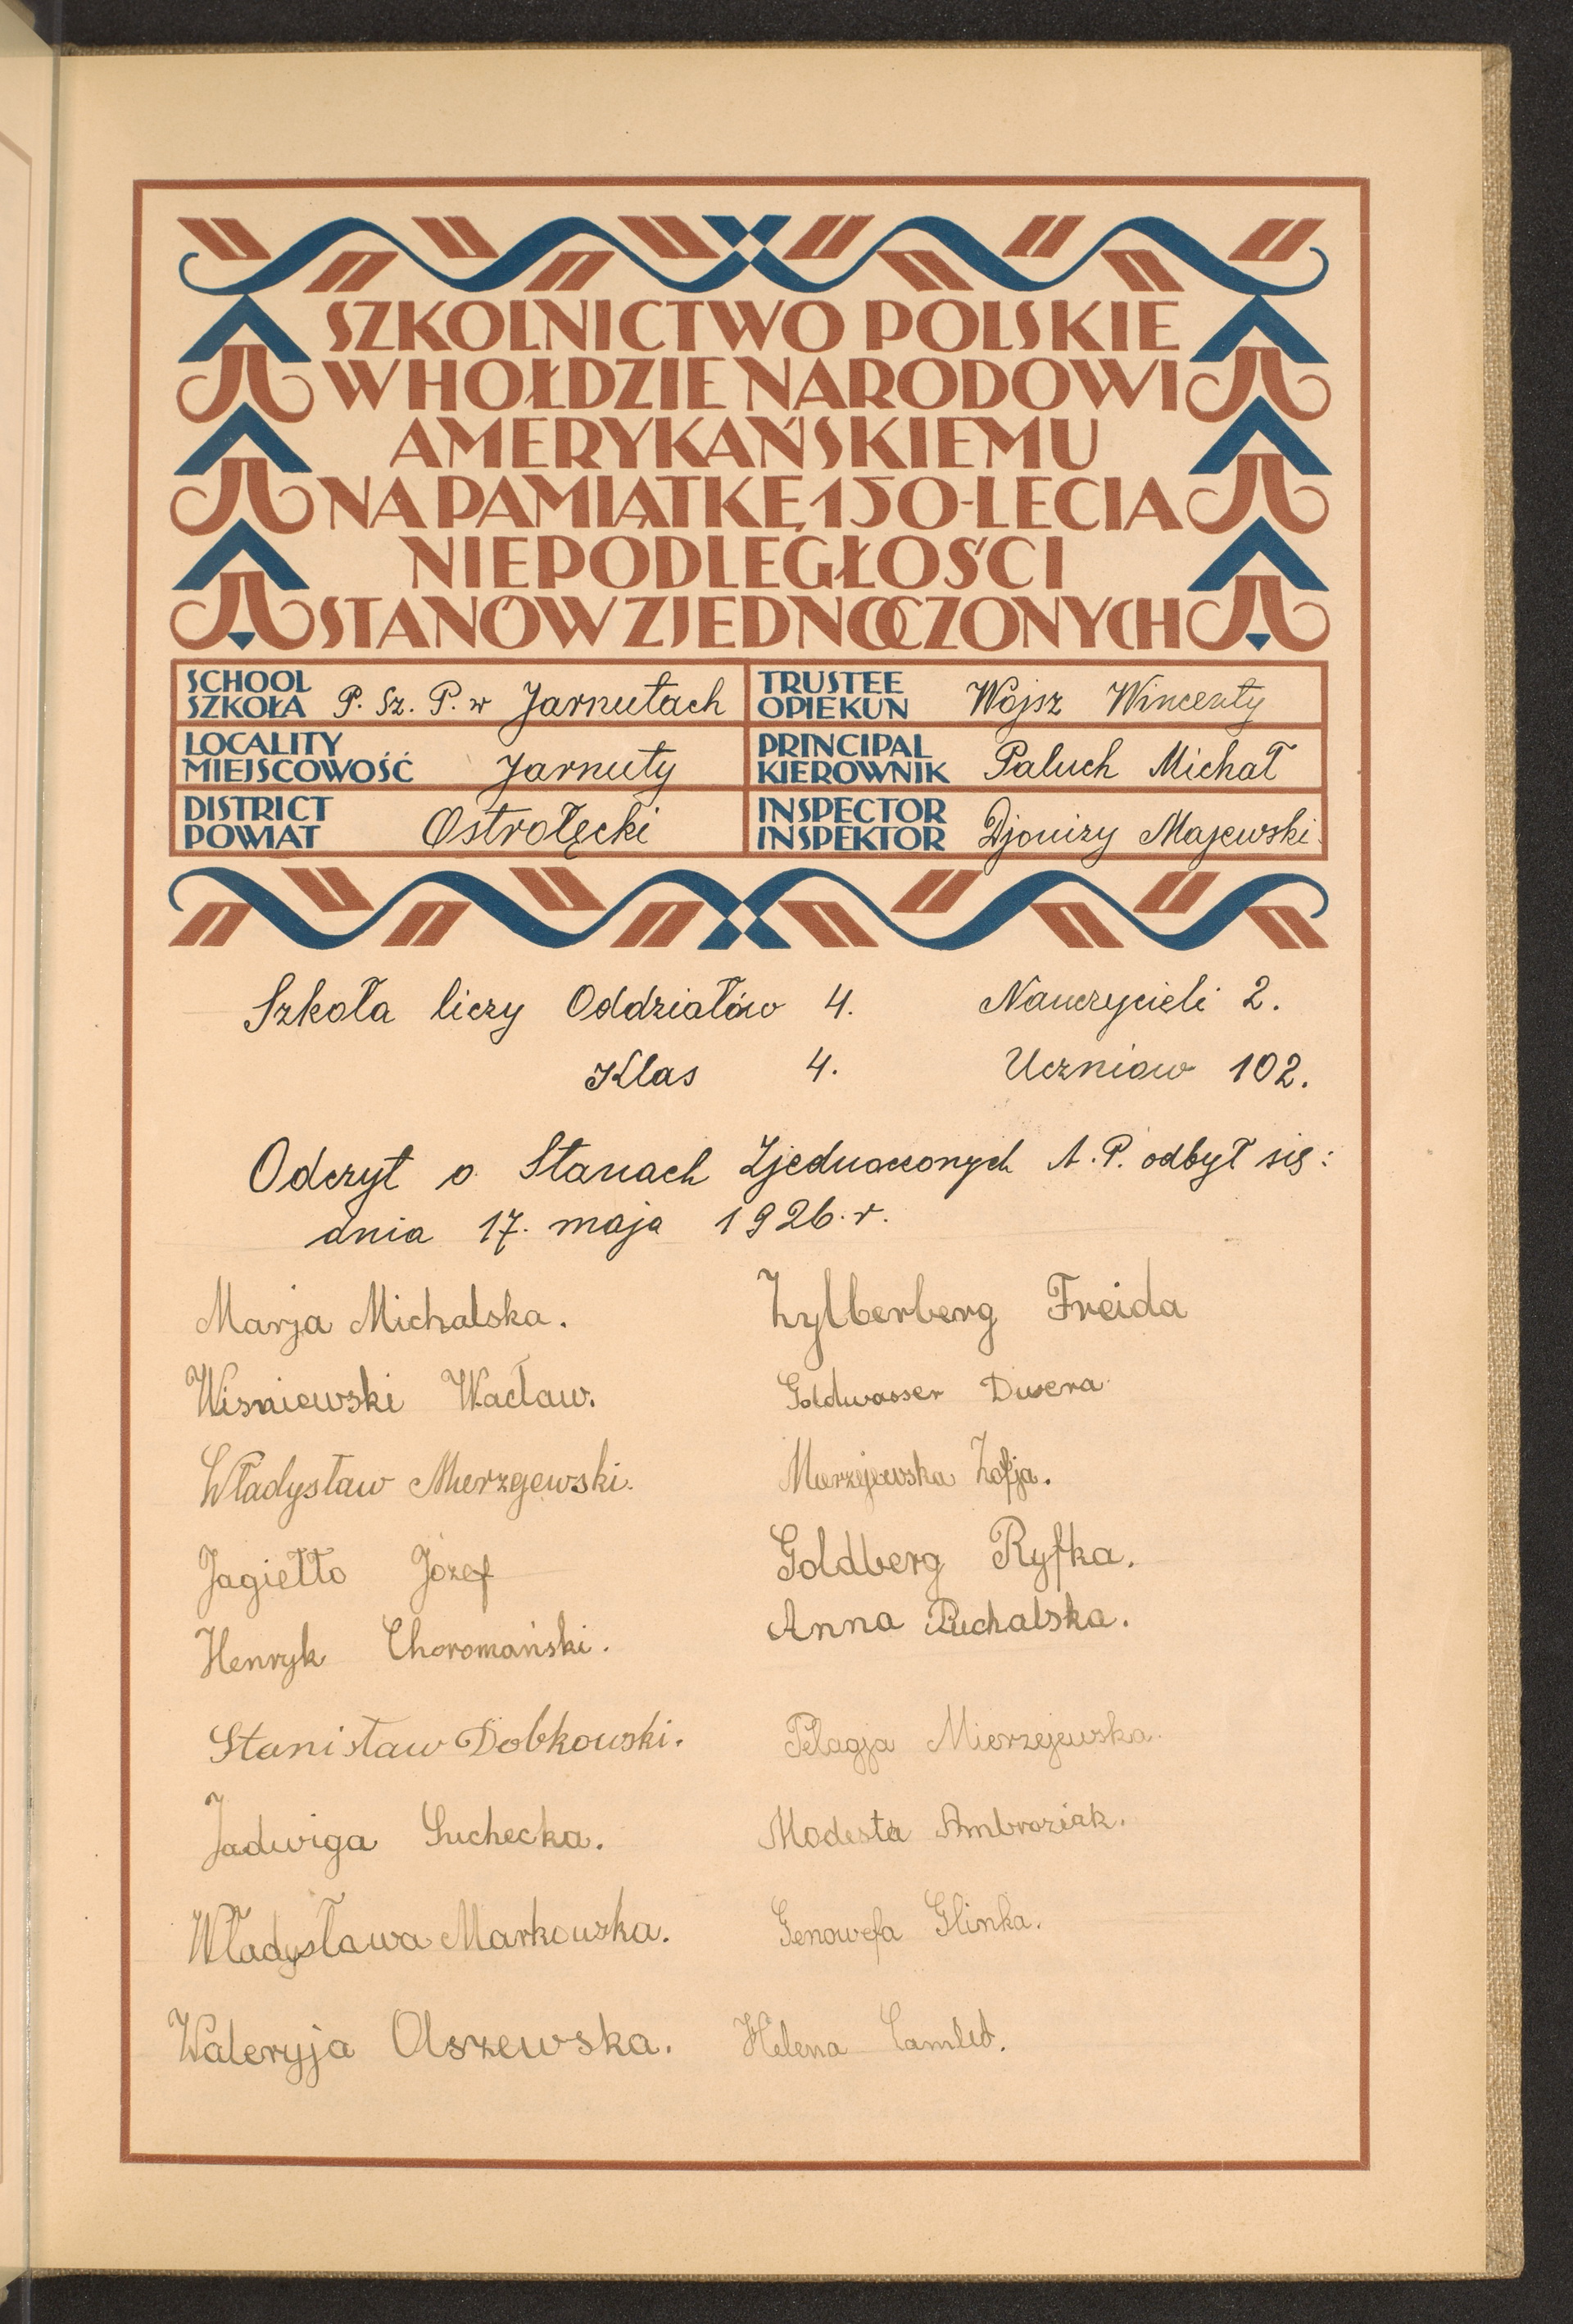 SZKOLNICTWO POLSKIE
W HOŁDZIE NARODOWI
AMERYKAŃSKIEMU
NA PAMIĄTKĘ 150-LECIA
NIEPODLEGŁOŚCI
STANÓW ZJEDNOCZONYCH
SCHOOL
SZKOŁA P. Sz. P. w Jarnutach
TRUSTEE
OPIEKUN Wojsz Wincenty
LOCALITY
MIEJSCOWOŚĆ Jarnuty
PRINCIPAL
KIEROWNIK Paluch Michał
DISTRICT
POWIAT Ostrołęcki
INSPECTOR
INSPEKTOR Djonizy Majewski.
Szkoła liczy Oddziałów 4. Nauczycieli 2.
Klas 4. Uczniow 102.
Odczyt o Stanach Zjednoczonych A.P. odbył się:
dnia 17. maja 1926.r.
Marja Michalska.
Wisniewski Wacław.
Władysław
Jagiełło Józef
Henryk Choromański.
Stanisław Dobkowski.
Jadwiga Suchecka.
Władysława Markowska.
Waleryja Olszewska.
Zylberberg Freida
Goldwasser
Zofja.
Goldberg Ryfka.
Anna Puchalska.
Pelagja Mierzejewska.
Modesta Ambroziak.
Genowefa Glinka.
Helena